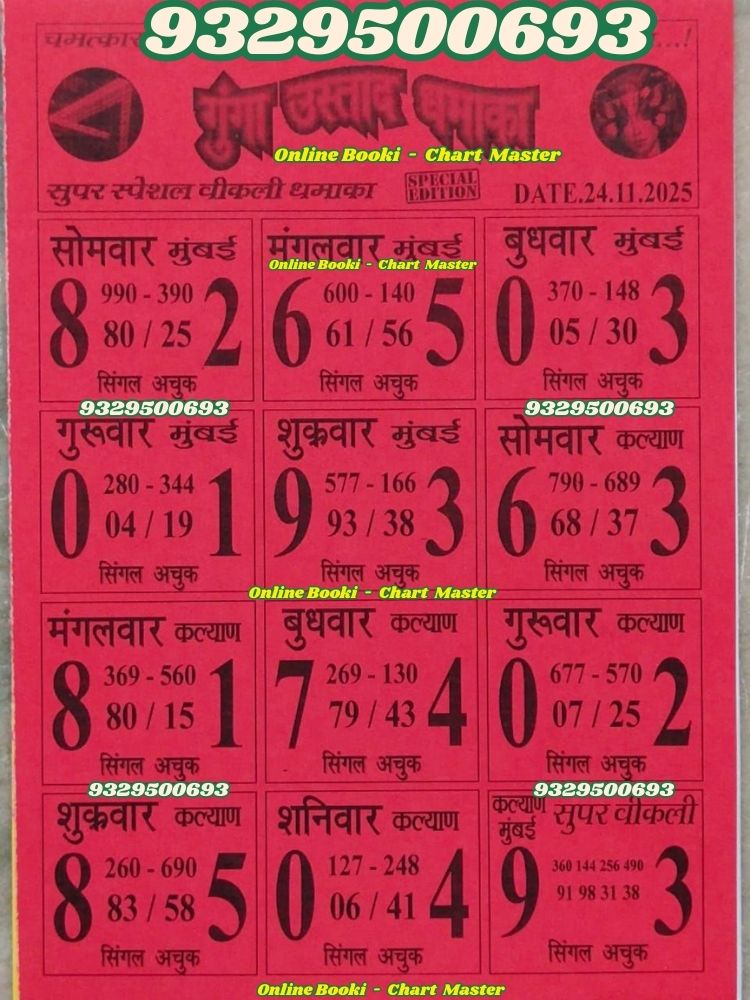 9329500693
चमत्कार
...!
गुंगा उस्ताद धमाका
Online Booki - Chart Master
सुपर स्पेशल वीकली धमाका
SPECIAL EDITION
DATE.24.11.2025
सोमवार मुंबई
990 - 390
8 2
80 / 25
सिंगल अचुक
मंगलवार मुंबई
Online Booki - Chart Master
600 - 140
6 5
61 / 56
सिंगल अचुक
बुधवार मुंबई
370 - 148
0 3
05 / 30
सिंगल अचुक
9329500693
9329500693
गुरूवार मुंबई
280 - 344
0 1
04 / 19
सिंगल अचुक
शुक्रवार मुंबई
577 - 166
9 3
93 / 38
सिंगल अचुक
सोमवार कल्याण
790 - 689
6 3
68 / 37
सिंगल अचुक
Online Booki - Chart Master
मंगलवार कल्याण
369 - 560
8 1
80 / 15
सिंगल अचुक
बुधवार कल्याण
269 - 130
7 4
79 / 43
सिंगल अचुक
गुरूवार कल्याण
677 - 570
0 2
07 / 25
सिंगल अचुक
9329500693
9329500693
शुक्रवार कल्याण
260 - 690
8 5
83 / 58
सिंगल अचुक
शनिवार कल्याण
127 - 248
0 4
06 / 41
सिंगल अचुक
कल्याण मुंबई सुपर वीकली
360 144 256 490
9 3
91 98 31 38
सिंगल अचुक
Online Booki - Chart Master